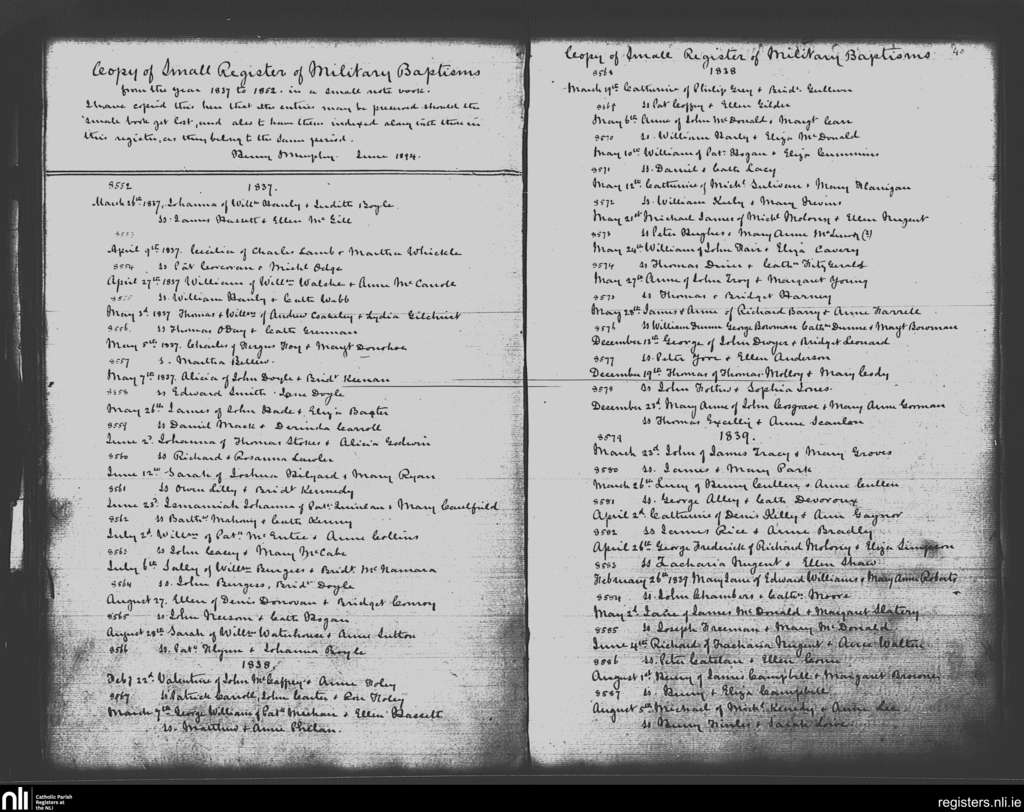 Copy of Small Register of Military Baptisms
from the year 1837 to 1852. in a small note book.
I have copied this here that the entries may be preserved should the
small book get lost, and also to have them indexed along with those in
this register, as they belong to the same period.
Henry Murphy. June 1894.
8552 1837.
March 26th 1837, Johanna of Willm Hanly & Judith Boyle.
ss. James Hassett & Ellen McGill
8553
April 9th 1837. Cecilia of Charles Lamb & Martha Whickle
8554 ss Pat Corcoran & Michl Odge
April 27th 1837 William of Willm Walshe & Anne McCarroll
8555 ss. William Hanly & Cath Webb
May 3d 1837 Thomas & Willm of Andrew Coakeley & Lydia Gilchrist
8556. ss Thomas O'Day & Cath Grennan
May 5th 1837. Charles of Fergus Foy & Margt Donohoe
8557 s. Martha Bellew.
May 7th 1837. Alicia of John Doyle & Bridt Keenan
8558 ss Edward Smith. Jane Doyle
May 26th James of John Hade & Eliza Baxter
8559 ss Daniel Mack & Derinda Carroll
June 2d Johanna of Thomas Stokes & Alicia Godwin
8560 ss Richard & Rosanna Lawler
June 12th Sarah of Joshua Bilyard & Mary Ryan
8561 ss Owen Lilly & Bridt Kennedy
June 25th Johanna of Patk Quinlan & Mary Caulfield
8562 ss Barthw Mahony & Cath Kenny
July 2d. Willm of Patk McEntee & Anne Collins
8563 ss John Casey & Mary McCabe
July 6th Sally of Willm Burgess & Bridt McNamara
8564 ss. John Burgess, Bridt Doyle
August 27. Ellen of Denis Donovan & Bridget Conroy
8565 ss John Neeson & Cath Hogan
August 28th Sarah of Willm Waterhouse & Anne Sutton
8566 ss. Patk Flynn & Johanna Boyle
1838.
Feby 22d. Valentine of John McCaffrey & Anne Foley
8567 ss Patrick Carroll, John Carter, & Rose Foley
March 7th George William of Patk Meehan & Ellen Hassett
ss. Matthew & Anne Phelan.
Copy of Small Register of Military Baptisms 40
8568 1838
March 19th Catherine of Philip Grey & Bridt Cullum
8569 ss Pat Coffey & Ellen Gilder
May 6th Anne of John McDonald & Margt Carr
8570 ss. William Hanly & Eliza McDonald
May 10th William of Patk Hogan & Eliza Cummins
8571 ss. Daniel & Cath Lacy
May 12th Catherine of Michl Sulivan & Mary Flanigan
8572 ss. William Kirby & Mary Nevins
May 21st Michael James of Michl Molony & Ellen Nugent
8573 ss Peter Hughes & Mary Anne (?)
May 24th William of John Hair & Eliza Cavery
8574 ss Thomas Dunn & Cathn FitzGerald
May 27th Anne of John Troy & Margaret Young
8575 ss Thomas & Bridget Harney
May 28th James & Anne of Richard Barry & Anne Farrell
8576 ss William Dunne George Bowman Cathn Dunne & Margt Bowman
December 13th George of John Dwyer & Bridget Leonard
8577 ss. Peter Yore & Ellen Anderson
December 19th Thomas of Thomas Molloy & Mary Cosby
8578 ss John & Sophia Jones
December 23d Mary Anne of John Cosgrave & Mary Anne Gorman
ss Thomas & Anne Scanlon
8579 1839.
March 23d John of James Tracy & Mary Groves
8580 ss. James & Mary Park
March 26th Lucy of Henry Cullen & Anne Cullen
8581 ss. George Alley & Cath Devoroux
April 2d. Catherine of Denis Kelly & Ann Gaynor
8582 ss James Rice & Anne Bradley
April 26th George Frederick of Richard Molony & Eliza Simpson
8583 ss Zacharia Nugent & Ellen Shaw
February 26th 1839 Mary Jane of Edward Williams & Mary Anne Roberts
8584 ss. John Chambers & Cathn Moore
May 2d. Jane of James McDonald & Margaret Slatery
8585 ss Joseph Freeman & Mary McDonald
June 4th Richard of Zacharia Nugent & Anne Walter
8586 ss. Peter & Ellen
August 1st Henry of James Campbell & Margaret
8587 ss. Henry & Eliza Campbell
August 5th Michael of Michl Kenedy & Anne Lee
ss Henry & Sarah
nli
Catholic Parish
Registers at
the NLI
registers.nli.ie